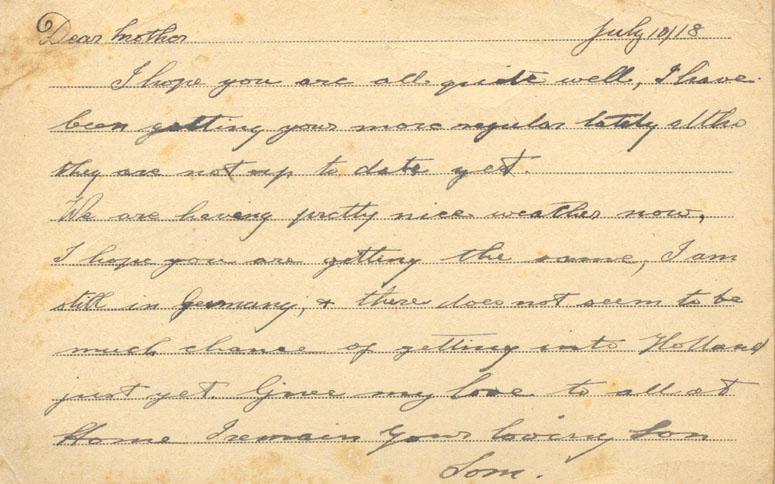 Dear Mother July 10/18
I hope you are all quite well, I have
been getting yours more regular lately altho
they are not up to date yet.
We are having pretty nice weather now,
I hope you are getting the same, I am
still in Germany, & there does not seem to be
much chance of getting into Holland
just yet. Give my love to all at
Home I remain Your loving Son
Tom.